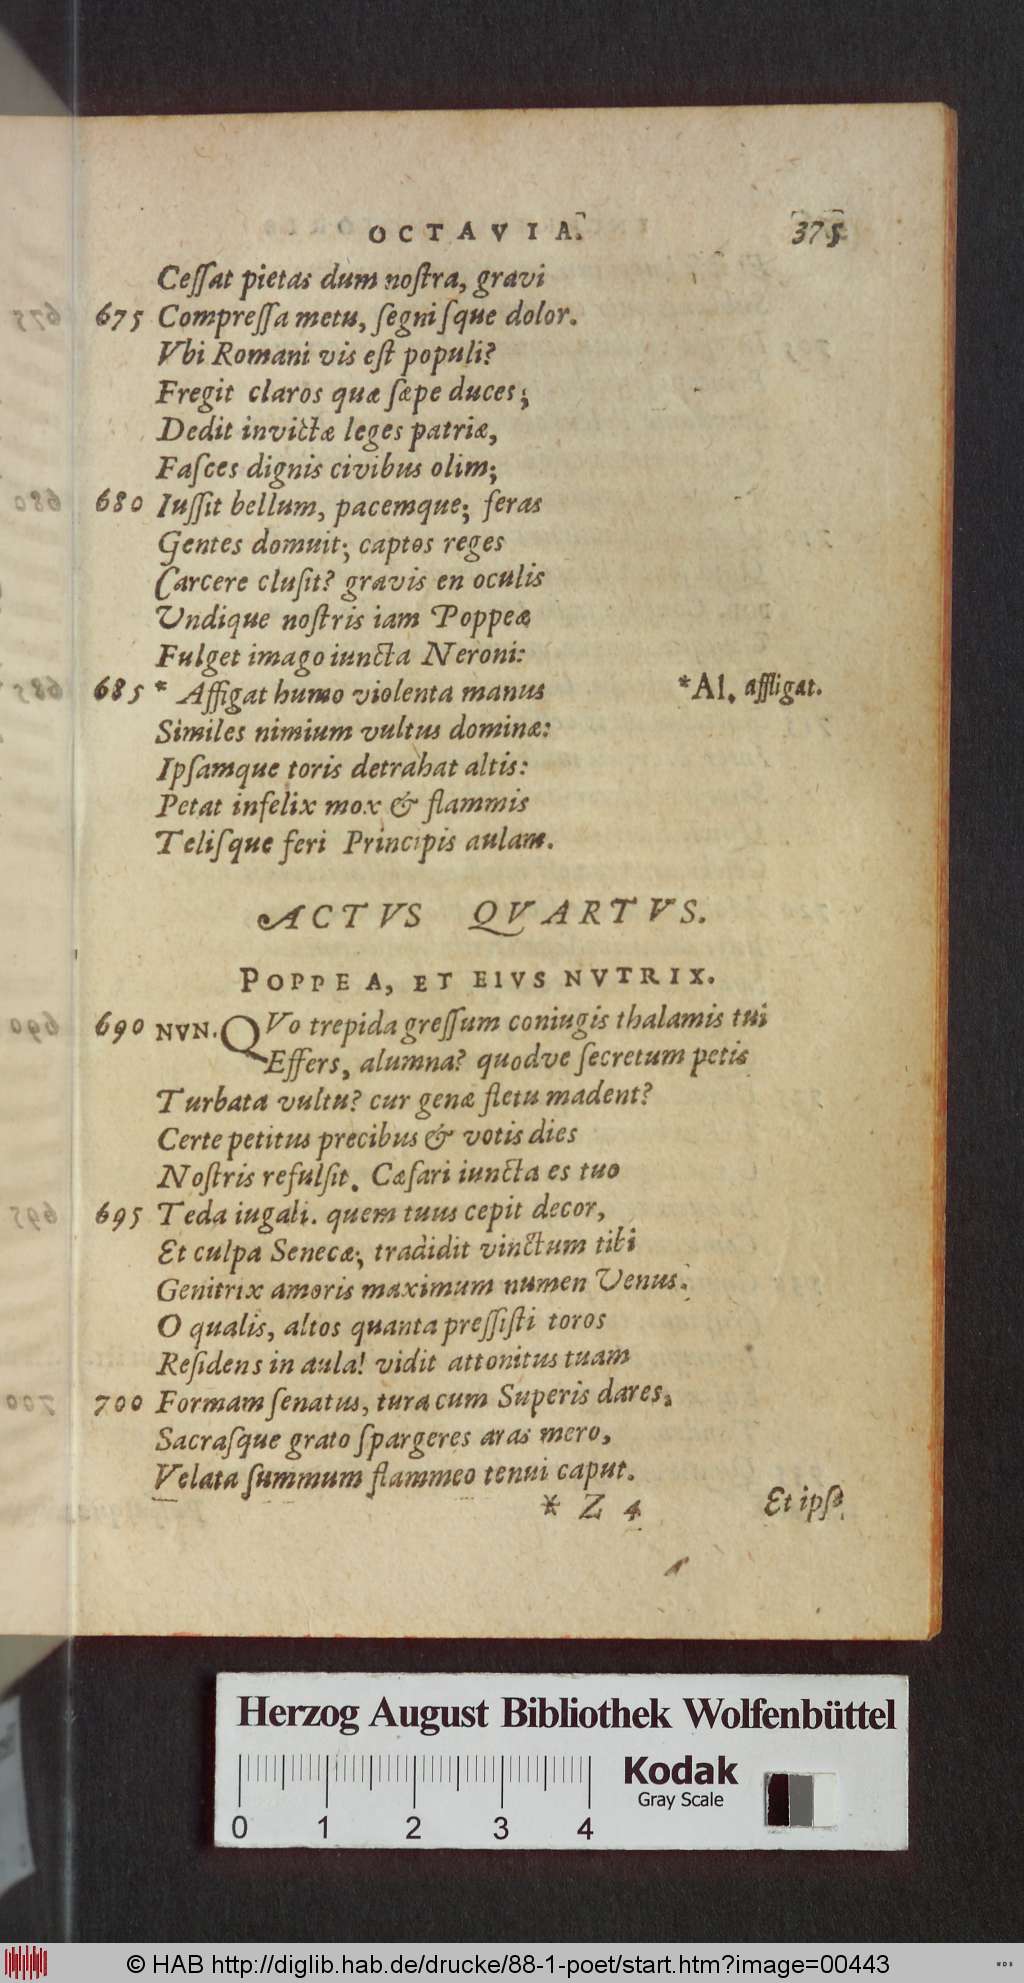 OCTAVIA. 375
Ceſſat pietas dum noſtra, gravi
675 Compreſſa metu, ſegniſque dolor.
Vbi Romani vis eſt populi?
Fregit claros quæ ſæpe duces;
Dedit invictæ leges patriæ,
Faſces dignis civibus olim;
680 Iuſſit bellum, pacemque; feras
Gentes domuit; captos reges
Carcere cluſit? gravis en oculis
Undique noſtris iam Poppeæ
Fulget imago iuncta Neroni:
685 * Affigat humo violenta manus *Al. affligat.
Similes nimium vultus dominæ:
Ipſamque toris detrahat altis:
Petat infelix mox & flammis
Teliſque feri Principis aulam.
ACTVS QVARTVS.
POPPEA, ET EIVS NVTRIX.
690 NVN. QVo trepida greſſum coniugis thalamis tui
Effers, alumna? quodve ſecretum petis
Turbata vultu? cur genæ fletu madent?
Certe petitus precibus & votis dies
Noſtris refulſit. Cæſari iuncta es tuo
695 Teda iugali. quem tuus cepit decor,
Et culpa Senecæ; tradidit vinctum tibi
Genitrix amoris maximum numen Venus.
O qualis, altos quanta preſſiſti toros
Reſidens in aula! vidit attonitus tuam
700 Formam ſenatus, tura cum Superis dares,
Sacraſque grato ſpargeres aras mero,
Velata ſummum flammeo tenui caput.
* Z 4 Et ipſe
Herzog August Bibliothek Wolfenbüttel
Kodak
Gray Scale
0 1 2 3 4
© HAB http://diglib.hab.de/drucke/88-1-poet/start.htm?image=00443